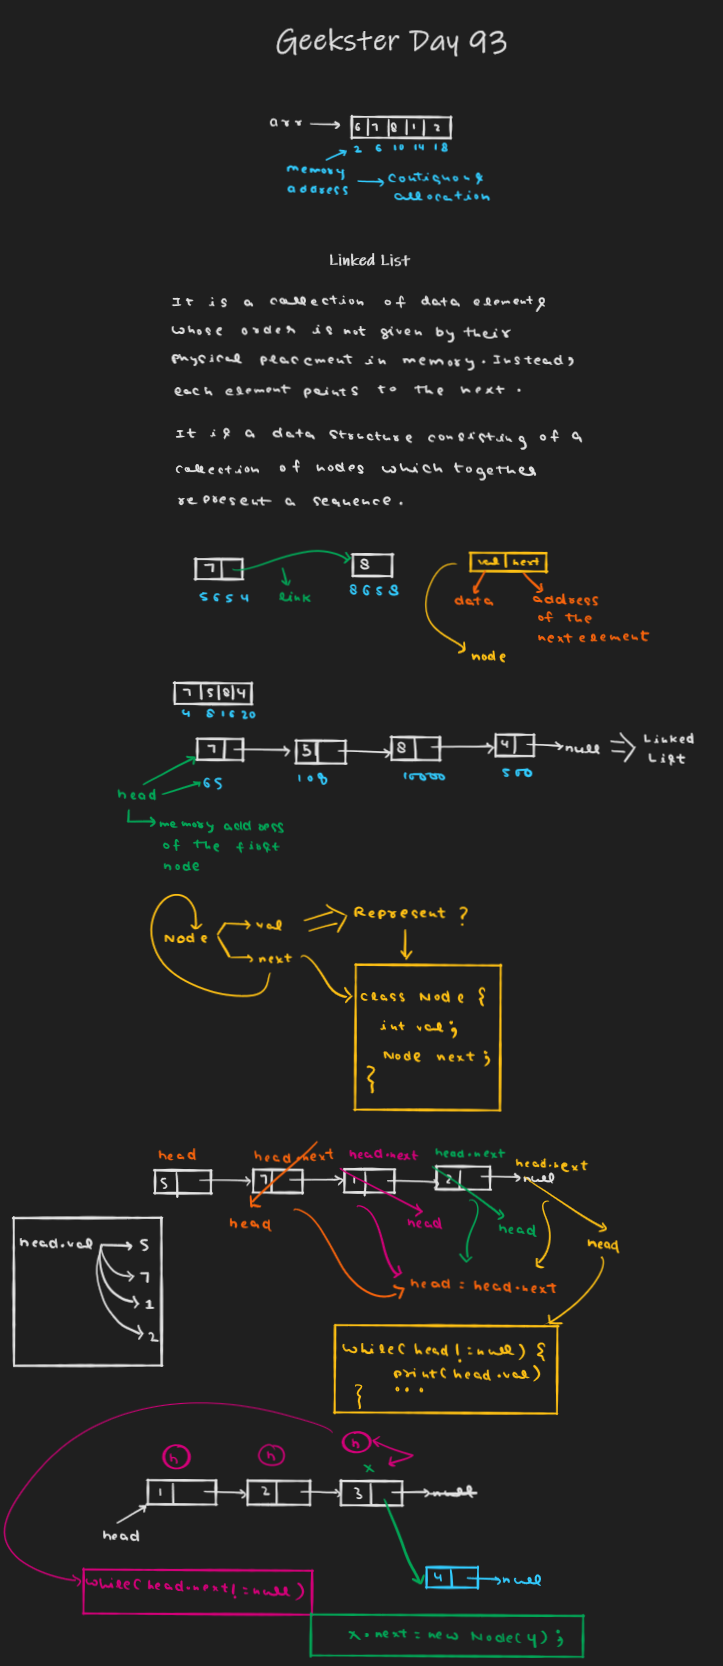 Geekster Day 93
arr
6 7 8 1 2
2 6 10 14 18
memory
address
contiguous
allocation
Linked List
It is a collection of data elements
whose order is not given by their
physical placement in memory. Instead,
each element points to the next.
It is a data structure consisting of a
collection of nodes which together
represent a sequence.
7
8
val next
5654
link
8658
data
address
of the
next element
node
7 5 8 4
4 8 16 20
7
5
8
4
null
Linked
List
65
108
10000
500
head
memory address
of the first
node
Node
val
next
Represent ?
class Node {
int val;
Node next;
}
head
head.next
head.next
head.next
head.next
5
7
1
2
null
head
head
head
head
head.val
5
7
1
2
head = head.next
while(head != null) {
print(head.val)
} ...
h
h
h
x
1
2
3
null
head
4
null
while(head.next != null)
x.next = new Node(4);